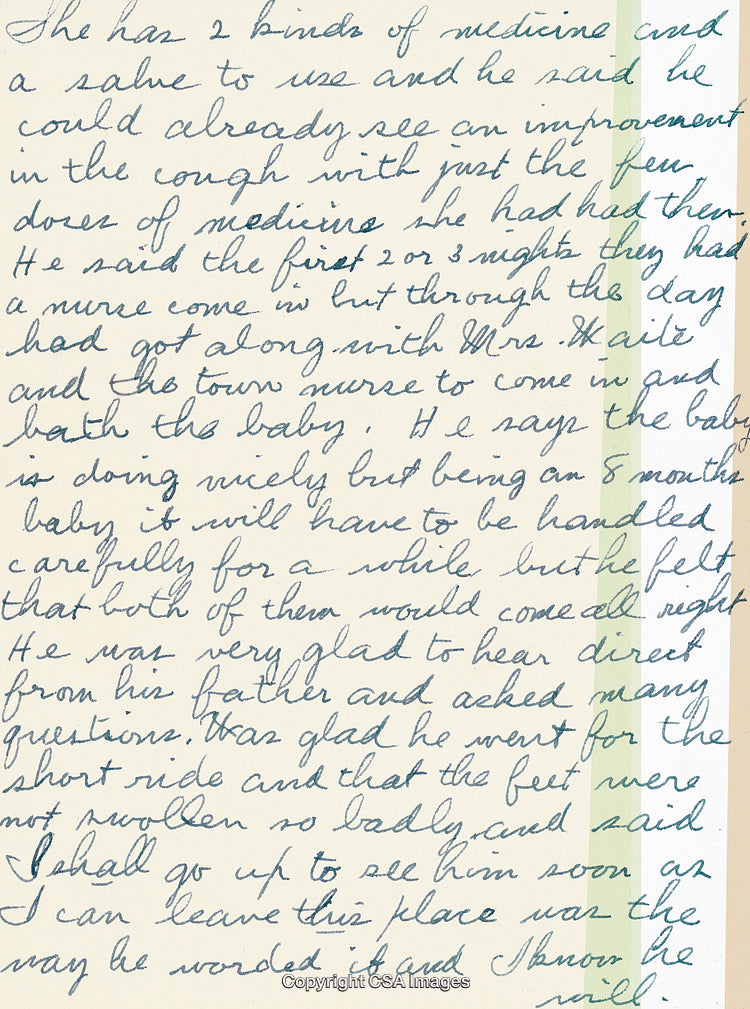 She has 2 kinds of medicine and
a salve to use and he said he
could already see an improvement
in the cough with just the few
doses of medicine she had had then.
He said the first 2 or 3 nights they had
a nurse come in but through the day
had got along with Mrs. Waite
and the town nurse to come in and
bath the baby. He says the baby
is doing nicely but being an 8 months
baby it will have to be handled
carefully for a while but he felt
that both of them would come all right
He was very glad to hear direct
from his father and asked many
questions. Was glad he went for the
short ride and that the feet were
not swollen so badly, and said
I shall go up to see him soon as
I can leave this place was the
way he worded it and I know he
will.
Copyright CSA Images